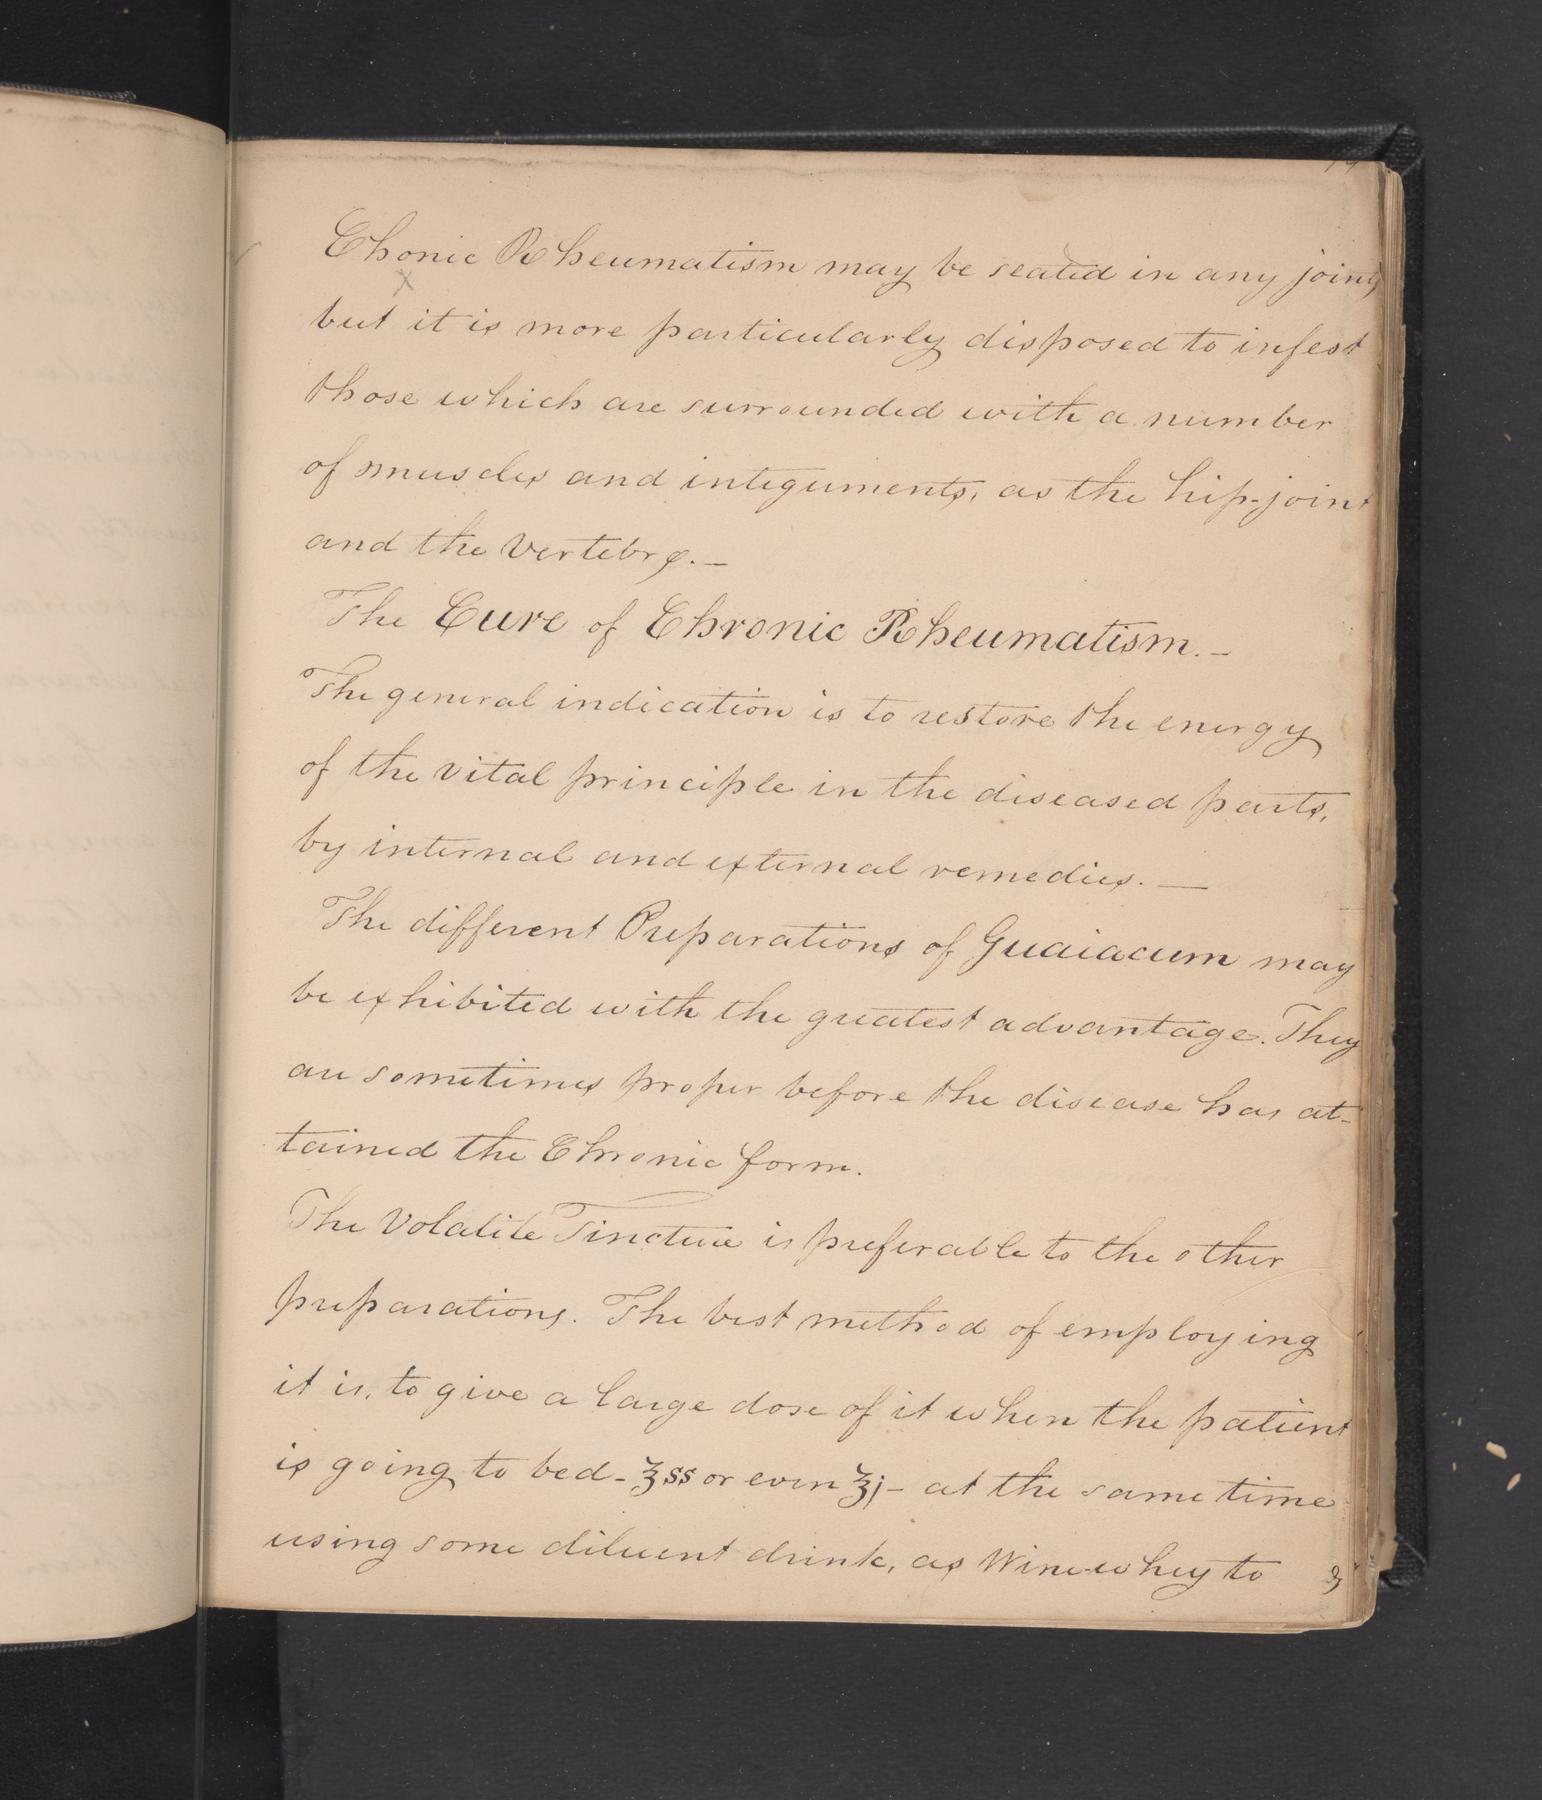 Chonic Rheumatism may be seated in any joint,
x
but it is more particularly disposed to infest
those which are surrounded with a number
of muscles and integuments, as the hip-joint
and the Vertebræ.—
The Cure of Chronic Rheumatism.—
The general indication is to restore the energy
of the vital principle in the diseased parts,
by internal and external remedies.—
The different Preparations of Guaiacum may
be exhibited with the greatest advantage. They
are sometimes proper before the disease has at-
tained the Chronic form.
The Volatile Tincture is preferable to the other
preparations. The best method of employing
it is, to give a large dose of it when the patient
is going to bed - ℥ss or even ℥j - at the same time
using some diluent drink, as Wine-whey to